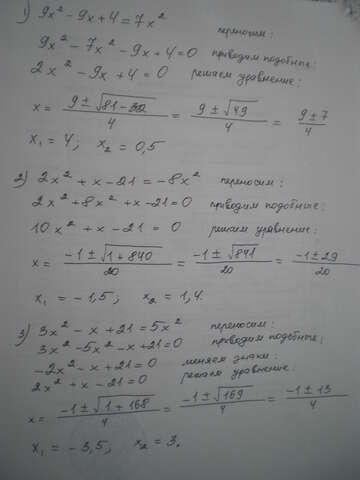 1) 9x² - 9x + 4 = 7x² переносим:
9x² - 7x² - 9x + 4 = 0 приводим подобные:
2x² - 9x + 4 = 0 решаем уравнение:
x = (9 ± √(81 - 32))/4 = (9 ± √49)/4 = (9 ± 7)/4
x₁ = 4; x₂ = 0,5
2) 2x² + x - 21 = -8x² переносим:
2x² + 8x² + x - 21 = 0 приводим подобные:
10x² + x - 21 = 0 решаем уравнение:
x = (-1 ± √(1 + 840))/20 = (-1 ± √841)/20 = (-1 ± 29)/20
x₁ = -1,5; x₂ = 1,4.
3) 3x² - x + 21 = 5x² переносим:
3x² - 5x² - x + 21 = 0 приводим подобные;
-2x² - x + 21 = 0 меняем знаки:
2x² + x - 21 = 0 решаем уравнение:
x = (-1 ± √(1 + 168))/4 = (-1 ± √169)/4 = (-1 ± 13)/4
x₁ = -3,5; x₂ = 3.